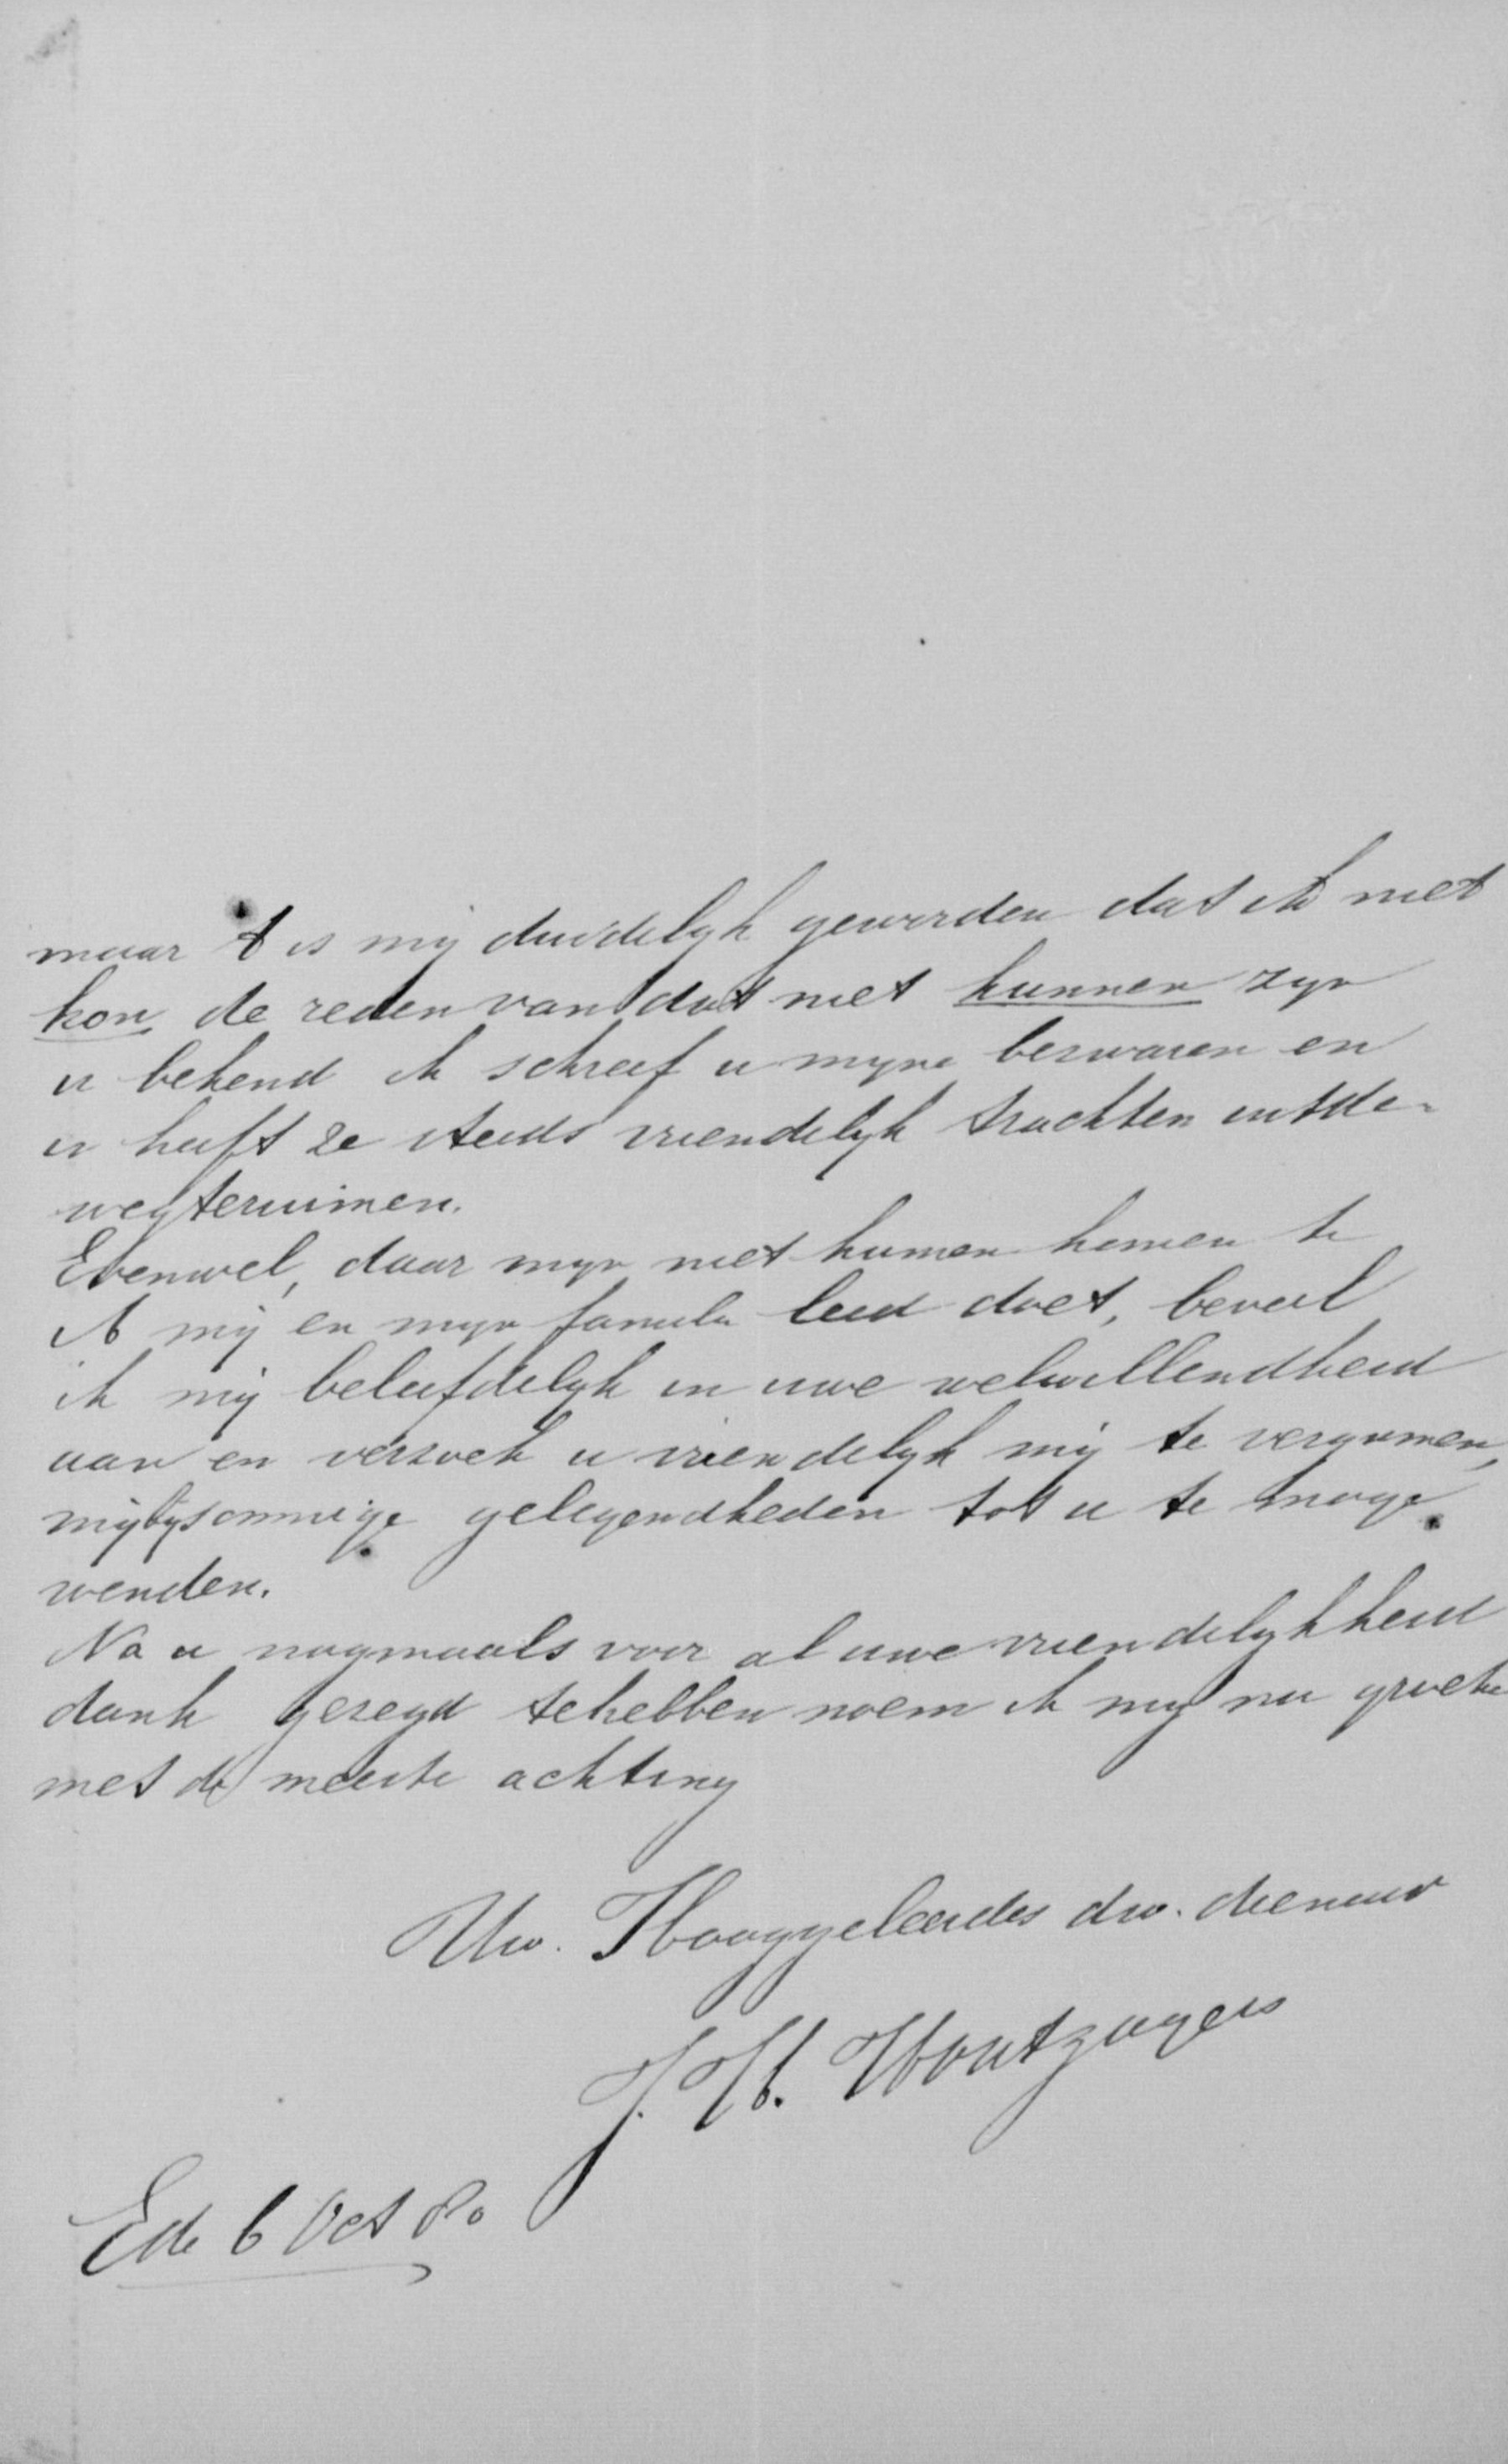 maar 't is mij duidelijk geworden dat ik niet
kon, de reden van dat niet kunnen zijn
u bekend ik schreef u mijne bezwaren en
u heeft ze steeds vriendelijk trachten uit de
weg te ruimen.
Evenwel, daar mijn niet kunnen komen te
mij en mijn familie leed doet, beveel
ik mij beleefdelijk in uwe welwillendheid
aan en verzoek u vriendelijk mij te vergunnen,
mij bij sommige gelegendheden tot u te moge
wenden.
Na u nogmaals voor al uwe vriendelijkheid
dank gezegd te hebben noem ik mij na groete
met de meeste achting
Uw. Hooggeleerdes dw. dienaar
J. H. Houtzagers
Ede 6 Oct 80